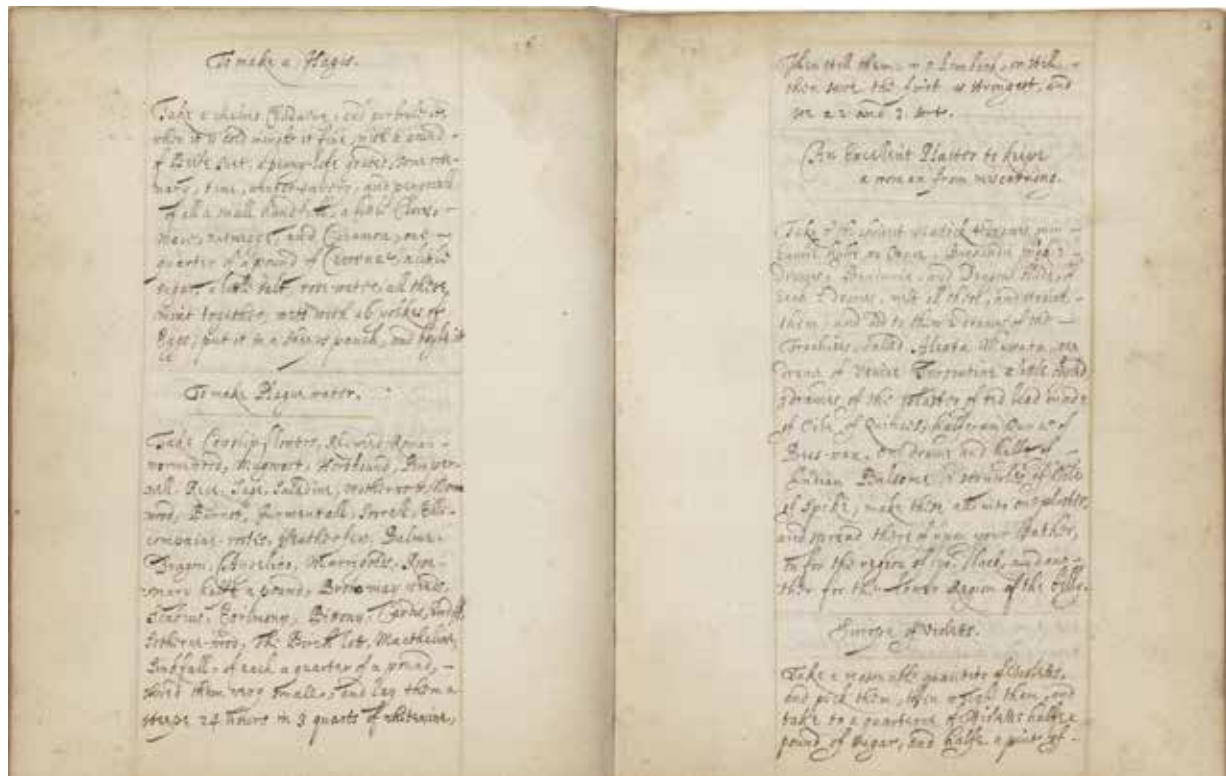 16
To make a Hagis.
Take a calves Chadarne, and perboile it,
when it is cold mingle it fine, with a pound
of Beife suet, a penny-lofe grated, some rose-
mary, time, winter-savory, and penyroall
of all a small handfull, a little Cloves,
mace, nutmegs, and Cinamon, one
quarter of a pound of Currans, a little
sugar, a little salt, rose-water, all these
mixt together, well with 16 yolkes of
Eggs, put it in a sheeps paunch, and boyle it
To make Plague water.
Take Couslip flowers, Roman
wormwood, Mugwort, Horehound, Pimper-
nall, Rue, Sage, Saladine,
wood, Burnet, Sorrell, Elli-
compaine rootes, featherfew, Balme
Dragon, Angelica, Marrigolds, Rose-
mary halfe a pound,
Egrimony, Bitony, Cardus,
Sotherne-wood,
of each a quarter of a pound,
shred them very small, and lay them a
steepe 24 hours in 3 quarts of whitewine,
then still them in a Limbeck, or still
then save the first as strongest, and
so a 2 and 3 sort.
An Excelent Plaister to keepe
a woman from miscarrying.
Take of the purest Mastick
Burgundie pitch 2
dragmes, Benjamin, and Dragons blood, of
each Drame, melt all these, and
them, and add to them 2 drams of the
Trochises, called Alexta Muscata, one
drame of Venice Turpentine a little
drames of the plaister of red lead made
of Oile of Quinces, halfe an Ounce of
Bees-wax, one drame and halfe of
Indian Balsome, 2 scruples of Oile
of Spike, make these all into one plaister,
and spread thereof upon your leather,
for the region of the Back, and ano-
ther for the Lower Region of the
Sirrope of Violets.
Take a reasonable quantity of Violets,
and pick them, then weigh them, and
take to a quarterne of Violets halfe a
pound of sugar, and halfe a pint of